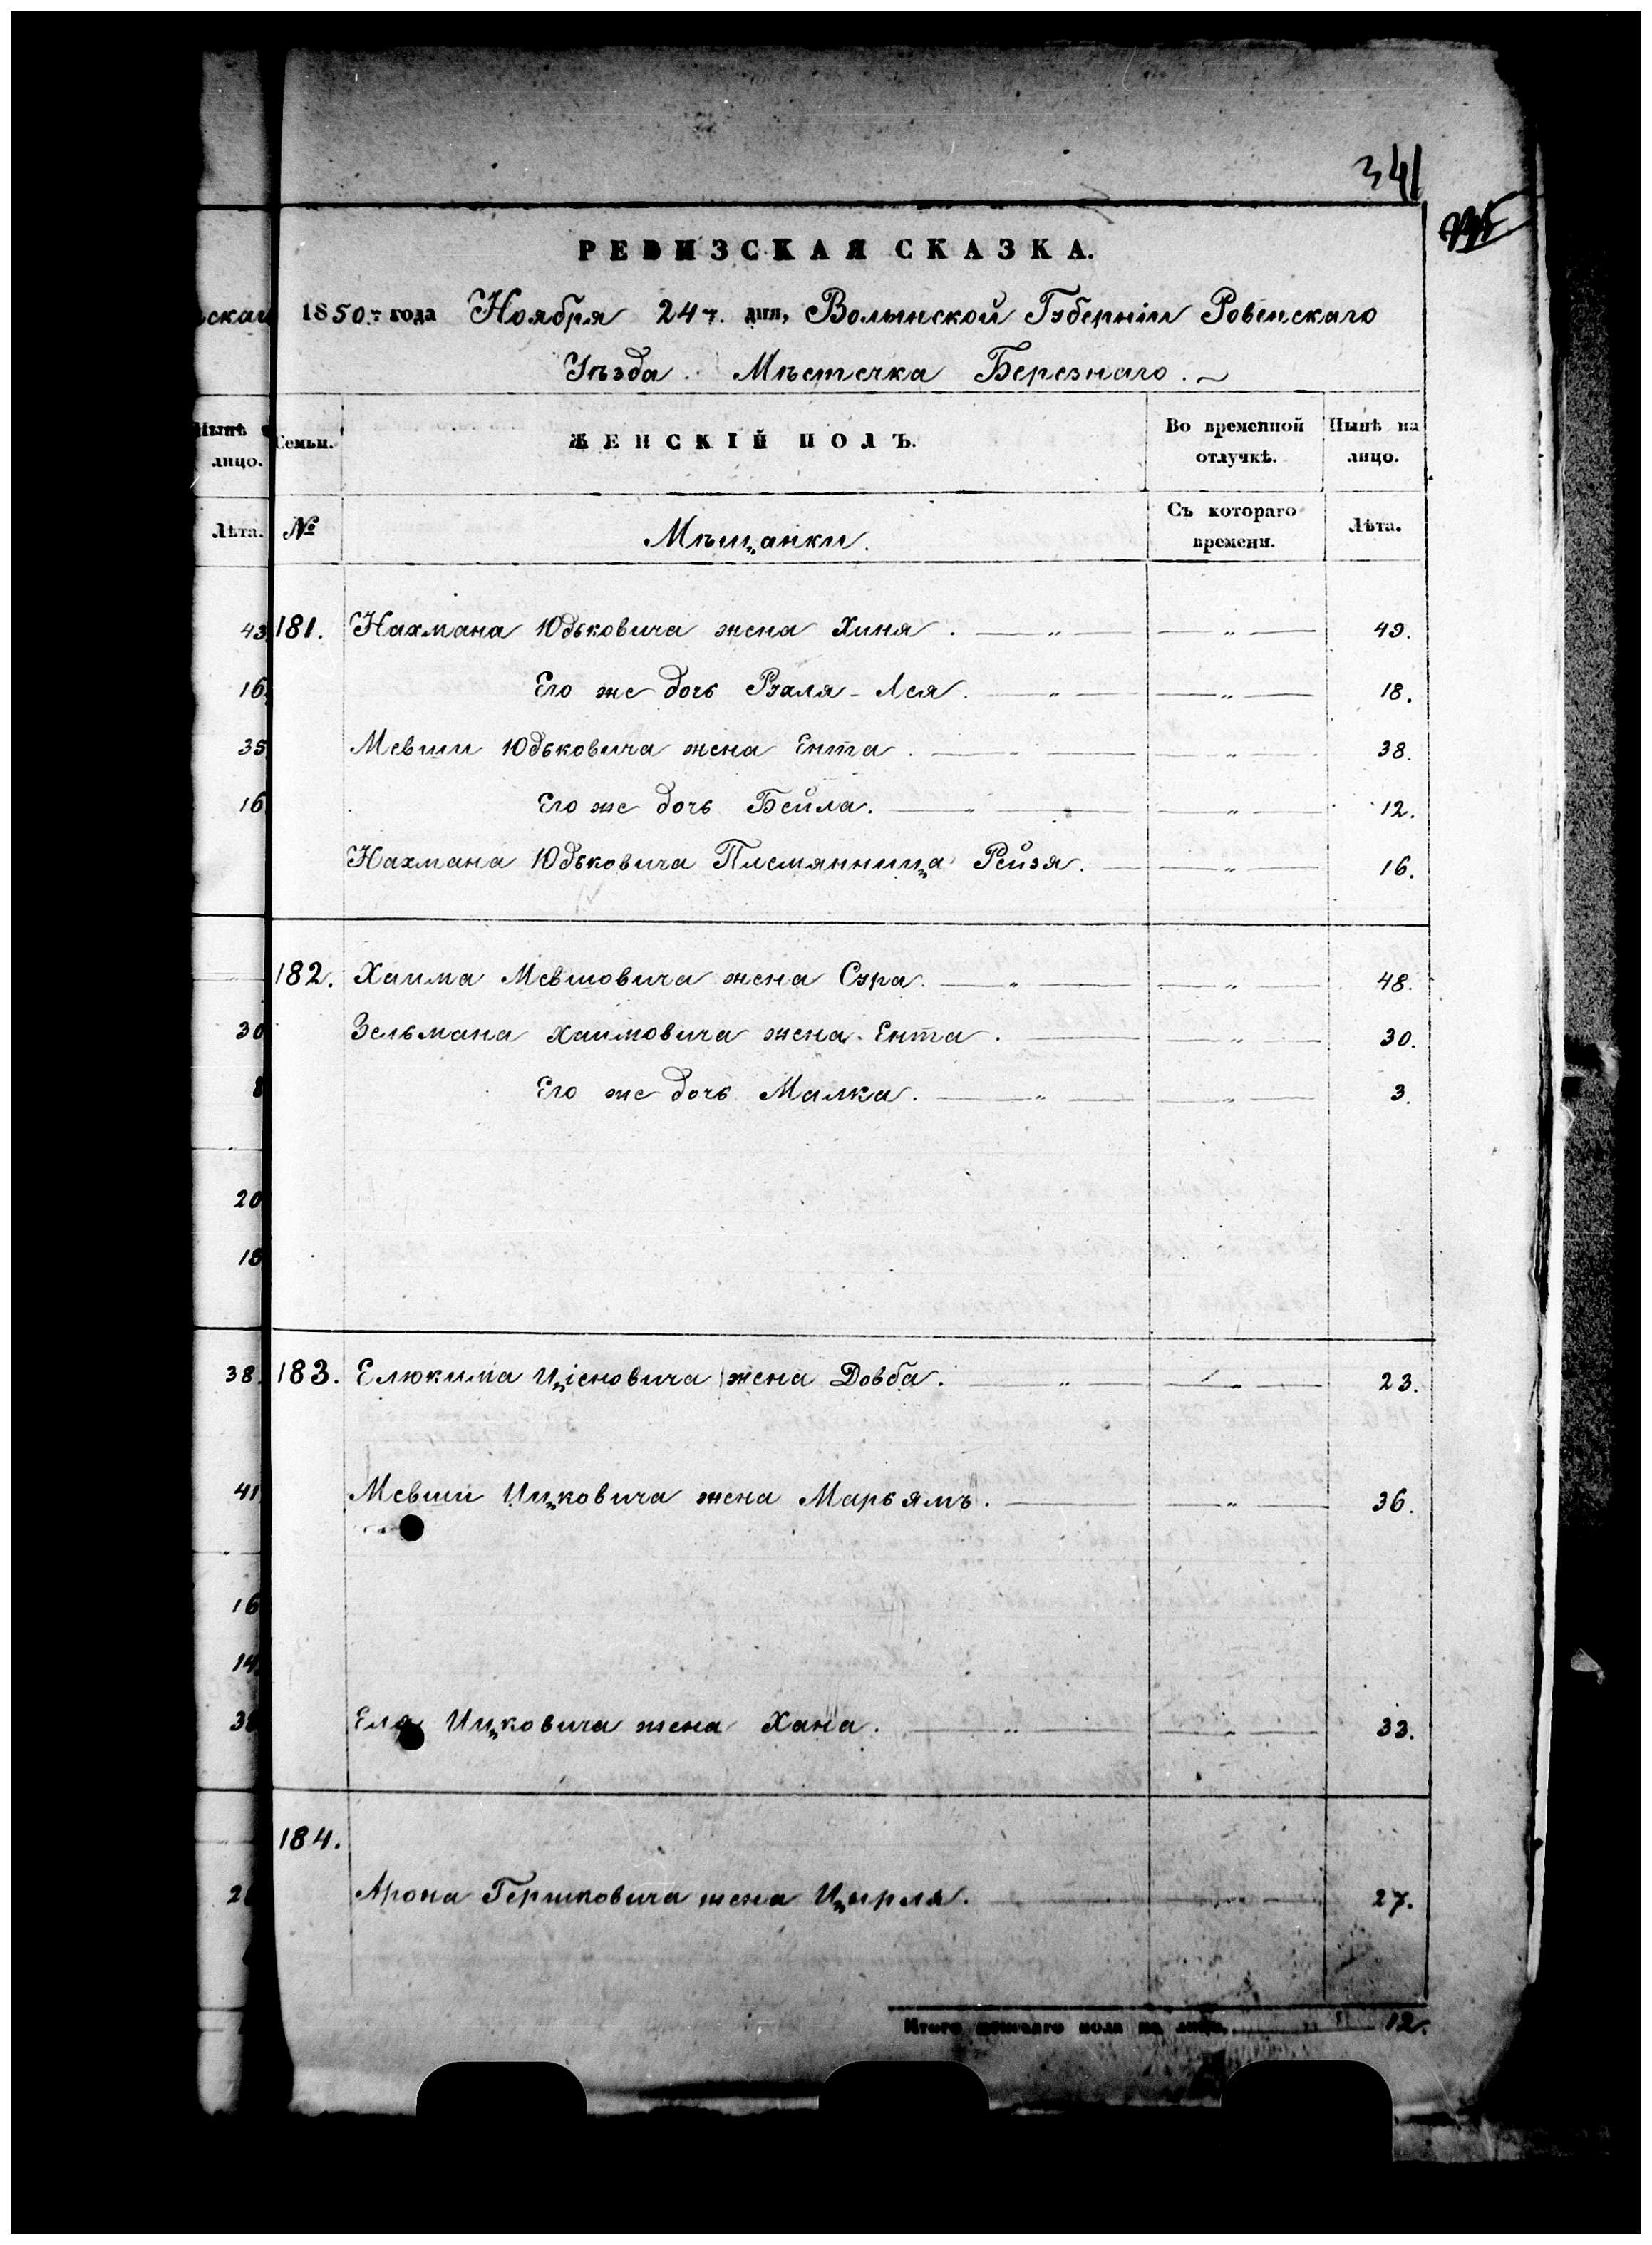 341
РЕВИЗСКАЯ СКАЗКА.
1850.го года Ноября 24го дня, Волынской Губерніи Ровенскаго
Уѣзда. Мѣстечка Березнаго.
Нынѣ
лицо.
Семьи.
ЖЕНСКІЙ ПОЛЪ.
Во временной отлучкѣ.
Нынѣ на лицо.
Лѣта.
№
Мѣщанки.
Съ котораго времени.
Лѣта.
43 181. Нахмана Юдьковича жена Хиня. — „ — — „ — 49.
16 Его же дочь Рухля-Лея. — „ — — „ — 18.
35 Мевши Юдьковича жена Ента. — „ — — „ — 38.
16 Его же дочь Бейла. — „ — — „ — 12.
Нахмана Юдьковича Племянница Рейзя. — — „ — 16.
182. Хаима Мевшовича жена Сура. — „ — — „ — 48.
30 Зельмана Хаимовича жена Ента. — — „ — 30.
8 Его же дочь Малка. — „ — — „ — 3.
20
18
38. 183. Елюкима Цісновича жена Довба. — „ — — „ — 23.
41 Мевши Ицковича жена Марьямъ. — — „ — 36.
16
14
Еля Ицковича жена Хана. — „ — — „ — 33.
184.
Арона Гершковича жена Цирля. — — „ — 27.
Итого женскаго пола на лицо. 12.